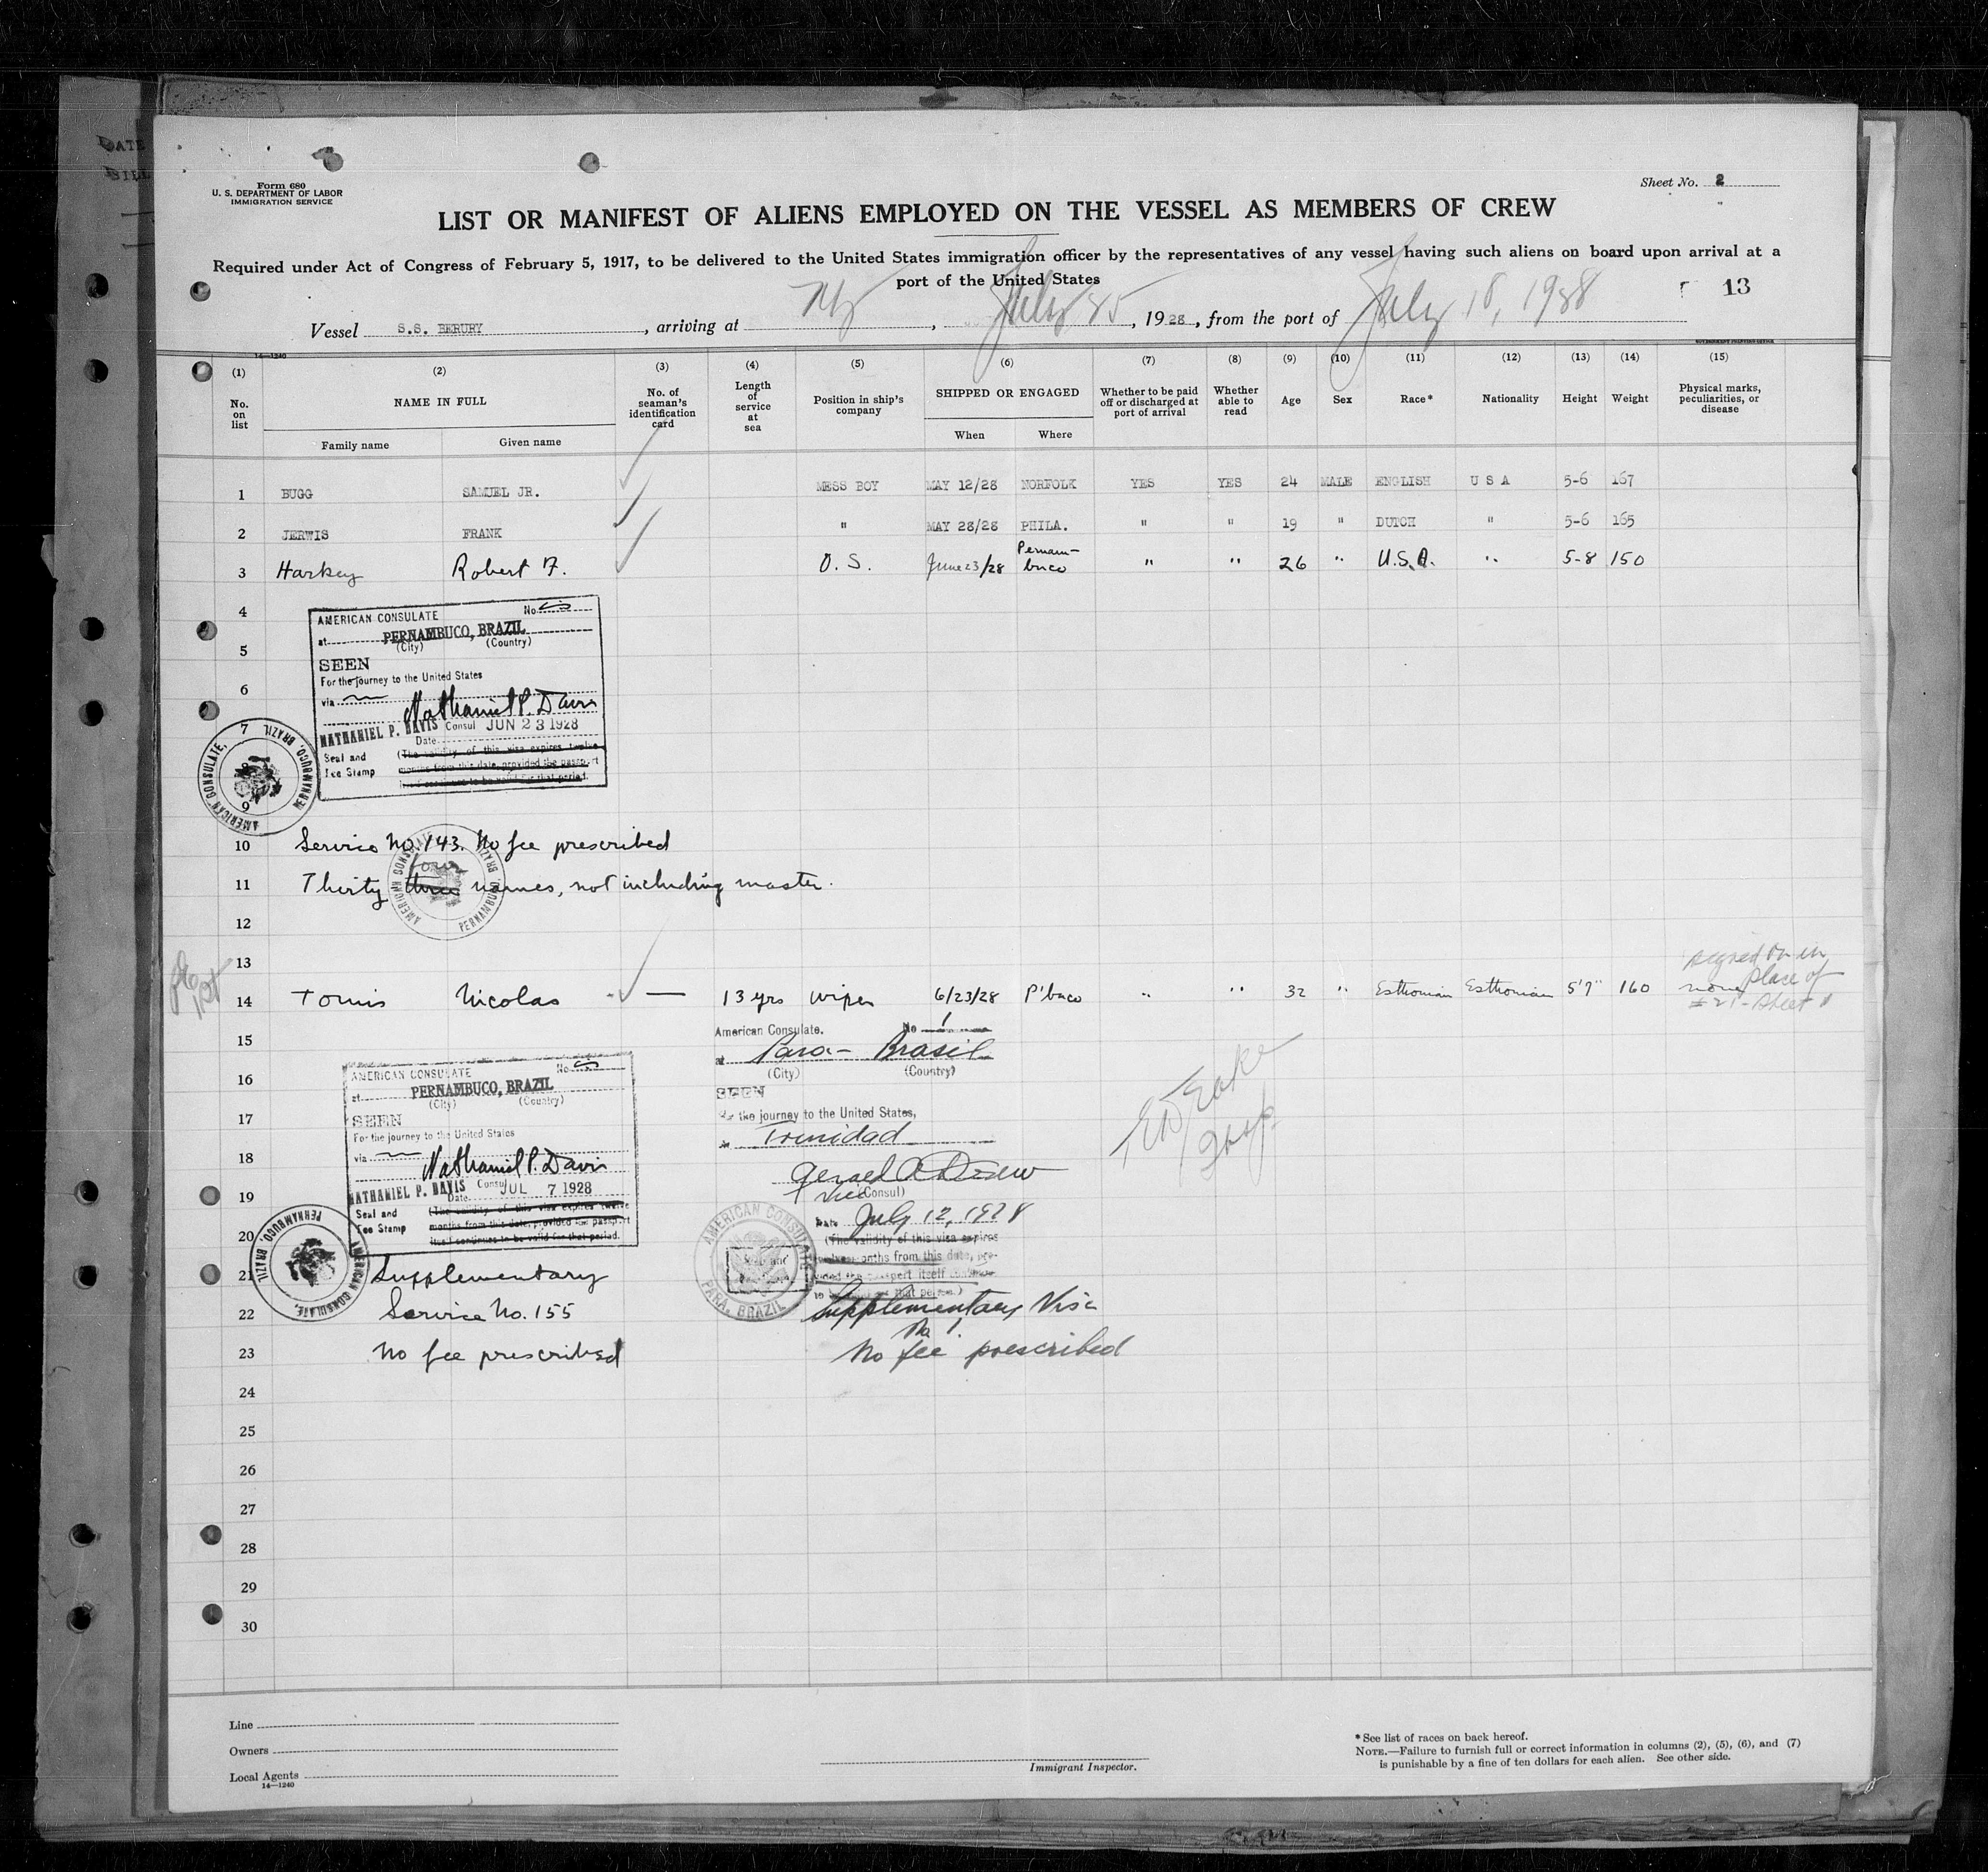 DATE
BILL
Form 680
U. S. DEPARTMENT OF LABOR
IMMIGRATION SERVICE
Sheet No. 2
LIST OR MANIFEST OF ALIENS EMPLOYED ON THE VESSEL AS MEMBERS OF CREW
Required under Act of Congress of February 5, 1917, to be delivered to the United States immigration officer by the representatives of any vessel having such aliens on board upon arrival at a
port of the United States
13
Vessel S.S. BERURY, arriving at Ny, July 25, 1928, from the port of July 18, 1928
14—1240
GOVERNMENT PRINTING OFFICE
(1) (2) (3) (4) (5) (6) (7) (8) (9) (10) (11) (12) (13) (14) (15)
No. on list
NAME IN FULL
Family name
Given name
No. of seaman's identification card
Length of service at sea
Position in ship's company
SHIPPED OR ENGAGED
When
Where
Whether to be paid off or discharged at port of arrival
Whether able to read
Age
Sex
Race*
Nationality
Height
Weight
Physical marks, peculiarities, or disease
1 BUGG SAMUEL JR. MESS BOY MAY 12/28 NORFOLK YES YES 24 MALE ENGLISH U S A 5-6 167
2 JERWIS FRANK " MAY 28/28 PHILA. " " 19 " DUTCH " 5-6 165
3 Harkey Robert F. O. S. June 23/28 Pernam-buco " " 26 " U.S.A. " 5-8 150
4
5
6
7
9
AMERICAN CONSULATE No.
at PERNAMBUCO, BRAZIL
(City) (Country)
SEEN
For the journey to the United States
via
Nathaniel P. Davis
NATHANIEL P. DAVIS Consul JUN 23 1928
Date
Seal and Fee Stamp
(The validity of this visa expires twelve
months from this date, provided the passport
itself continues to be valid for that period.
AMERICAN CONSULATE, PERNAMBUCO, BRAZIL
10 Service No. 143. No fee prescribed
four
11 Thirty three names, not including master.
AMERICAN CONSULATE PERNAMBUCO, BRAZIL
12
13
14 Tomis Nicolas — 13 yrs wiper 6/23/28 P'buco " " 32 " Esthonian Esthonian 5'7" 160 none
signed on in
place of
#21 - Sheet 1
15
16
17
18
19
20
21
22
23
AMERICAN CONSULATE No.
at PERNAMBUCO, BRAZIL
(City) (Country)
SEEN
For the journey to the United States
via
Nathaniel P. Davis
NATHANIEL P. DAVIS Consul
Date JUL 7 1928
Seal and Fee Stamp
(The validity of this visa expires twelve
months from this date, provided the passport
itself continues to be valid for that period.
AMERICAN CONSULATE, PERNAMBUCO, BRAZIL
Supplementary
Service No. 155
No fee prescribed
American Consulate. No 1
at Para - Brasil
(City) (Country)
SEEN
For the journey to the United States,
Trinidad
Vice Consul)
Date July 12, 1928
(The validity of this visa expires
twelve months from this date, pro-
vided the passport itself continues
to be valid for that period.)
AMERICAN CONSULATE PARA, BRAZIL
Supplementary Visa
No 1
No fee prescribed
24
25
26
27
28
29
30
Line
Owners
Local Agents
14—1240
Immigrant Inspector.
*See list of races on back hereof.
NOTE.—Failure to furnish full or correct information in columns (2), (5), (6), and (7)
is punishable by a fine of ten dollars for each alien. See other side.